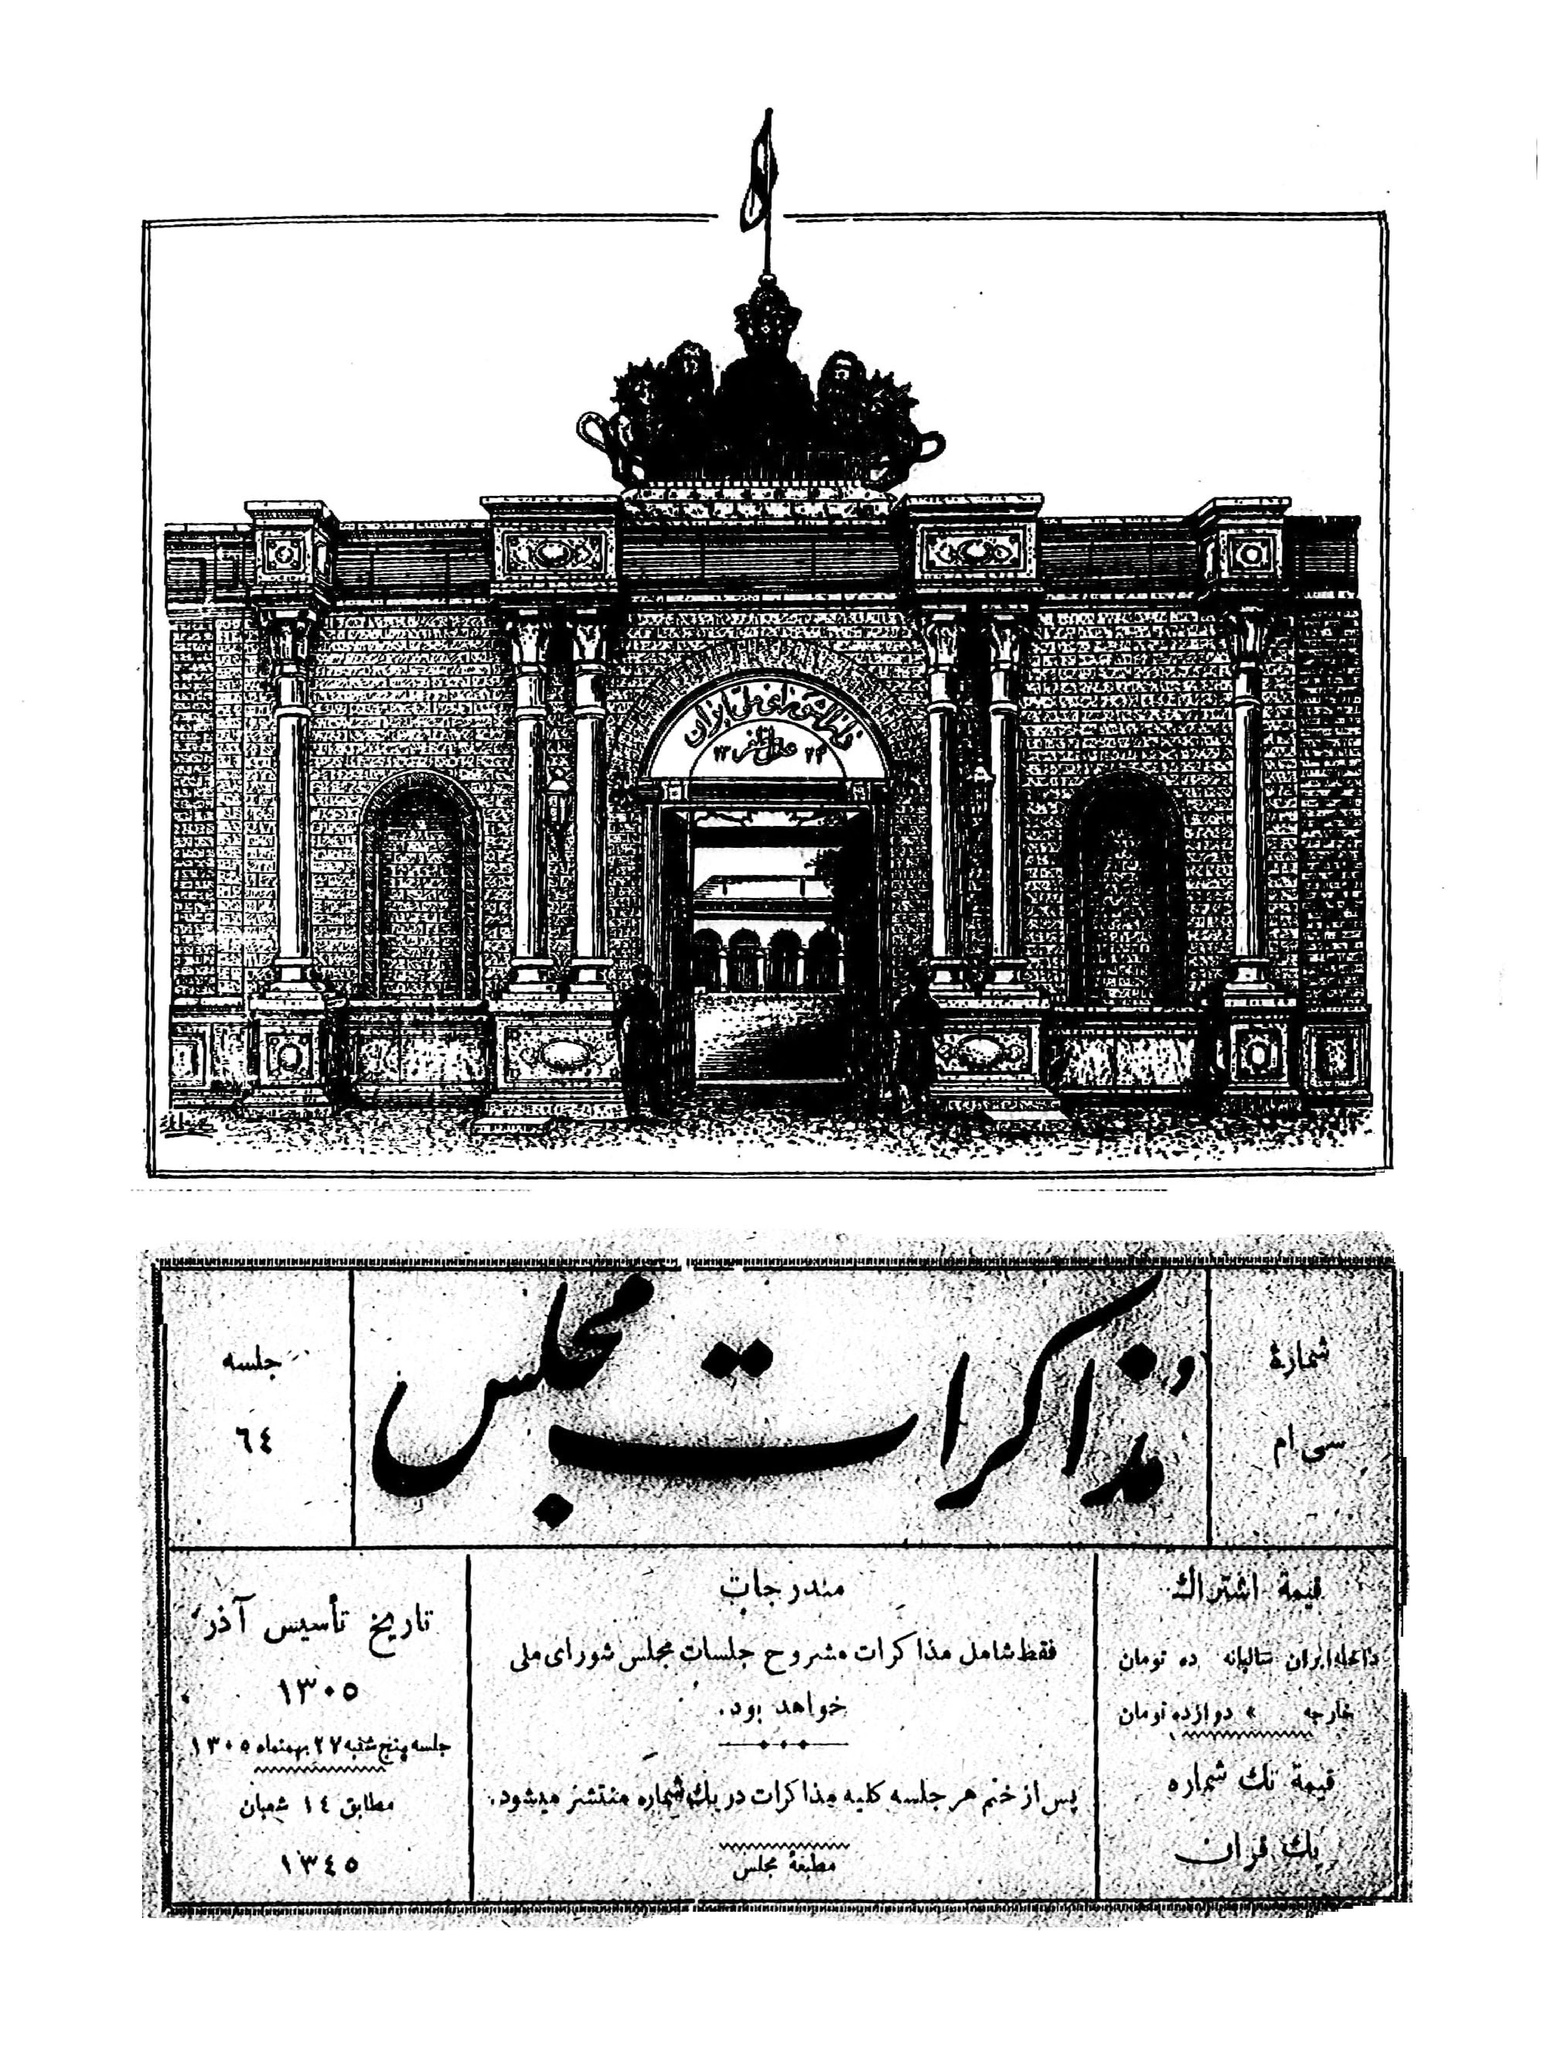 دارالشورای ملی ایران
عدل مظفر
شمارهٔ
سی ام
مذاکرات مجلس
جلسه
٦٤
قیمة اشتراك
داخله ایران سالیانه ده تومان
خارجه » دوازده تومان
قیمة تك شماره
یك قران
مندرجات
فقط شامل مذاکرات مشروح جلسات مجلس شورای ملی
خواهد بود.
پس از ختم هر جلسه کلیه مذاکرات در یك شماره منتشر میشود.
مطبعهٔ مجلس
تاریخ تأسیس آذر
١٣٠٥
جلسه پنج شنبه ٢٧ بهمنماه ١٣٠٥
مطابق ١٤ شعبان
١٣٤٥